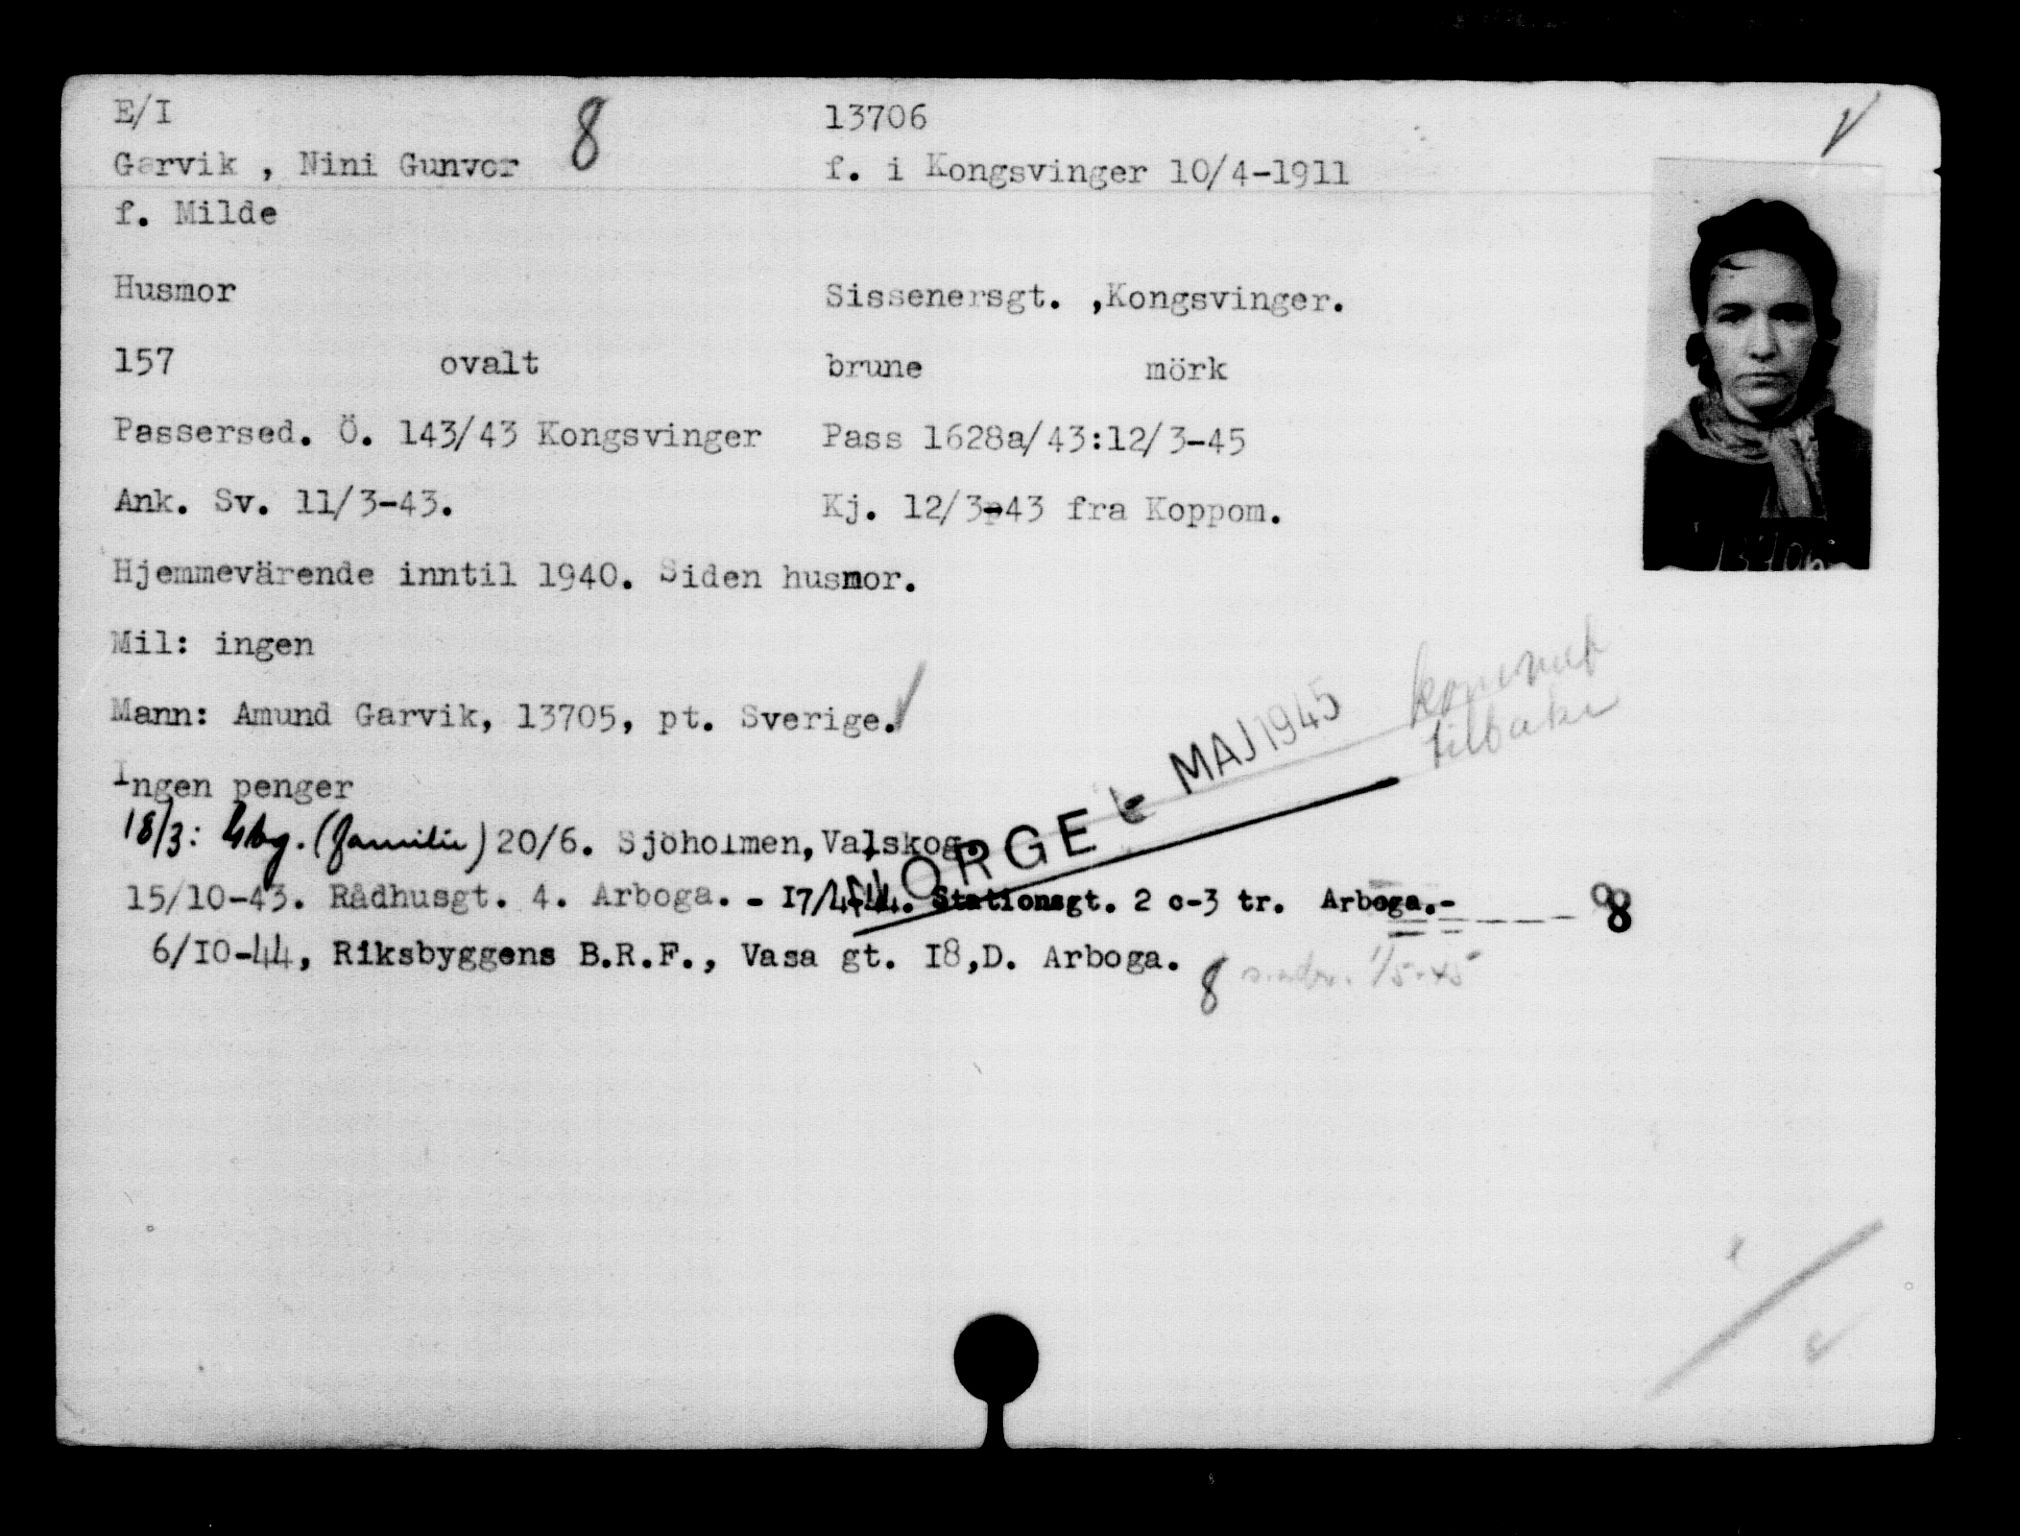 E/I 8 13706
Garvik , Nini Gunvor f. i Kongsvinger 10/4-1911
f. Milde
Husmor Sissenersgt. ,Kongsvinger.
157 ovalt brune mörk
Passersed. Ö. 143/43 Kongsvinger Pass 1628a/43:12/3-45
Ank. Sv. 11/3-43. Kj. 12/3-43 fra Koppom.
13706
Hjemmevärende inntil 1940. Siden husmor.
Mil: ingen
Mann: Amund Garvik, 13705, pt. Sverige.
kommet
tilbake
NORGE MAJ 1945
Ingen penger
18/3: (familie) 20/6. Sjöholmen, Valskog.
15/10-43. Rådhusgt. 4. Arboga. - 17/4-44. Stationsgt. 2 o-3 tr. Arboga.- 8
6/10-44, Riksbyggens B.R.F., Vasa gt. 18,D. Arboga. 8 1/5-45